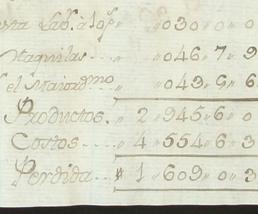 sta Lab.r à 10 p.r " " 030 " 0 " 0
Maquilas . . " " 046 " 7 " 9
el Maiord.mo " " 043 " 6 " 6
Productos. " 2 " 945 " 6 " 0
Costos . . . . " 4 " 554 " 6 " 3
Perdida . . . $ 1 " 609 " 0 " 3